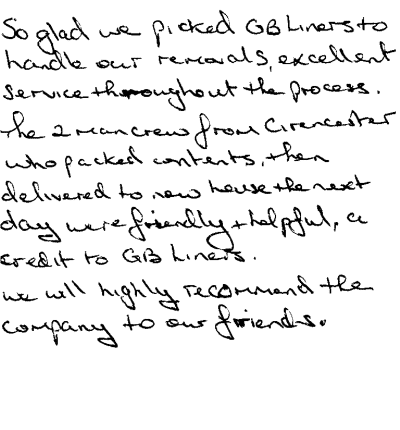 So glad we picked GB Liners to
handle our removals, excellent
service throughout the process.
The 2 man crew from Cirencester
who packed contents, then
delivered to new house the next
day were friendly + helpful, a
credit to GB Liners.
we will highly recommend the
company to our friends.